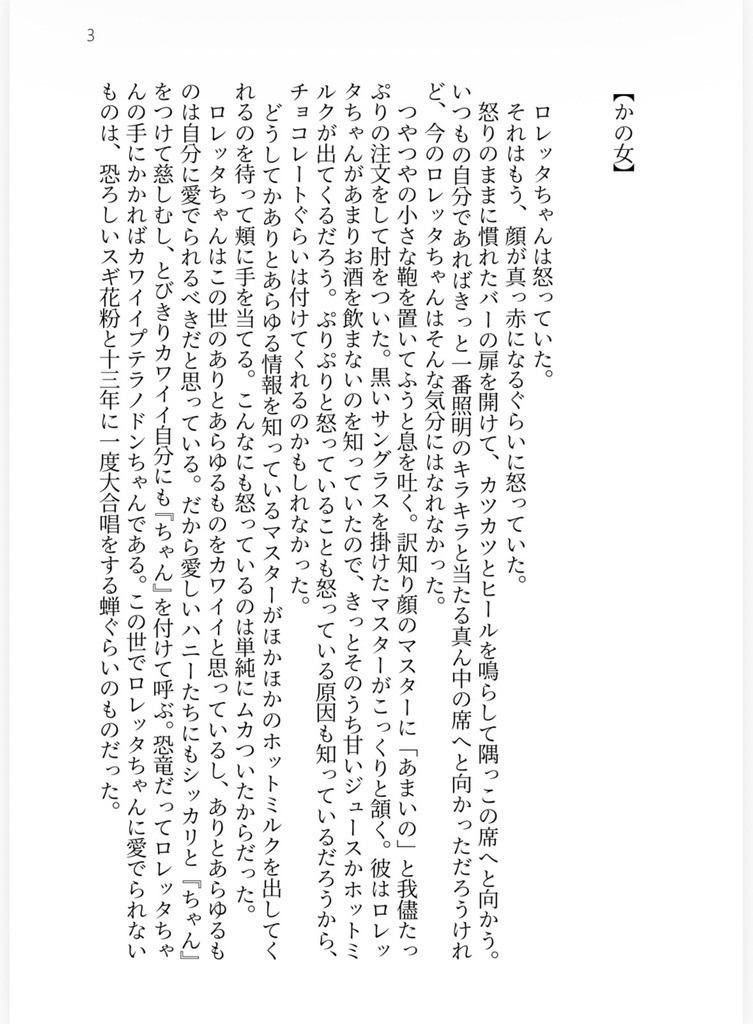 3
【かの女】
ロレッタちゃんは怒っていた。
それはもう、顔が真っ赤になるぐらいに怒っていた。
怒りのままに慣れたバーの扉を開けて、カツカツとヒールを鳴らして隅っこの席へと向かう。
いつもの自分であればきっと一番照明のキラキラと当たる真ん中の席へと向かっただろうけれ
ど、今のロレッタちゃんはそんな気分にはなれなかった。
つやつやの小さな鞄を置いてふうと息を吐く。訳知り顔のマスターに「あまいの」と我儘たっ
ぷりの注文をして肘をついた。黒いサングラスを掛けたマスターがこっくりと頷く。彼はロレッ
タちゃんがあまりお酒を飲まないのを知っていたので、きっとそのうち甘いジュースかホットミ
ルクが出てくるだろう。ぷりぷりと怒っていることも怒っている原因も知っているだろうから、
チョコレートぐらいは付けてくれるのかもしれなかった。
どうしてかありとあらゆる情報を知っているマスターがほかほかのホットミルクを出してく
れるのを待って頬に手を当てる。こんなにも怒っているのは単純にムカついたからだった。
ロレッタちゃんはこの世のありとあらゆるものをカワイイと思っているし、ありとあらゆるも
のは自分に愛でられるべきだと思っている。だから愛しいハニーたちにもシッカリと『ちゃん』
をつけて慈しむし、とびきりカワイイ自分にも『ちゃん』を付けて呼ぶ。恐竜だってロレッタちゃ
んの手にかかればカワイイプテラノドンちゃんである。この世でロレッタちゃんに愛でられない
ものは、恐ろしいスギ花粉と十三年に一度大合唱をする蝉ぐらいのものだった。